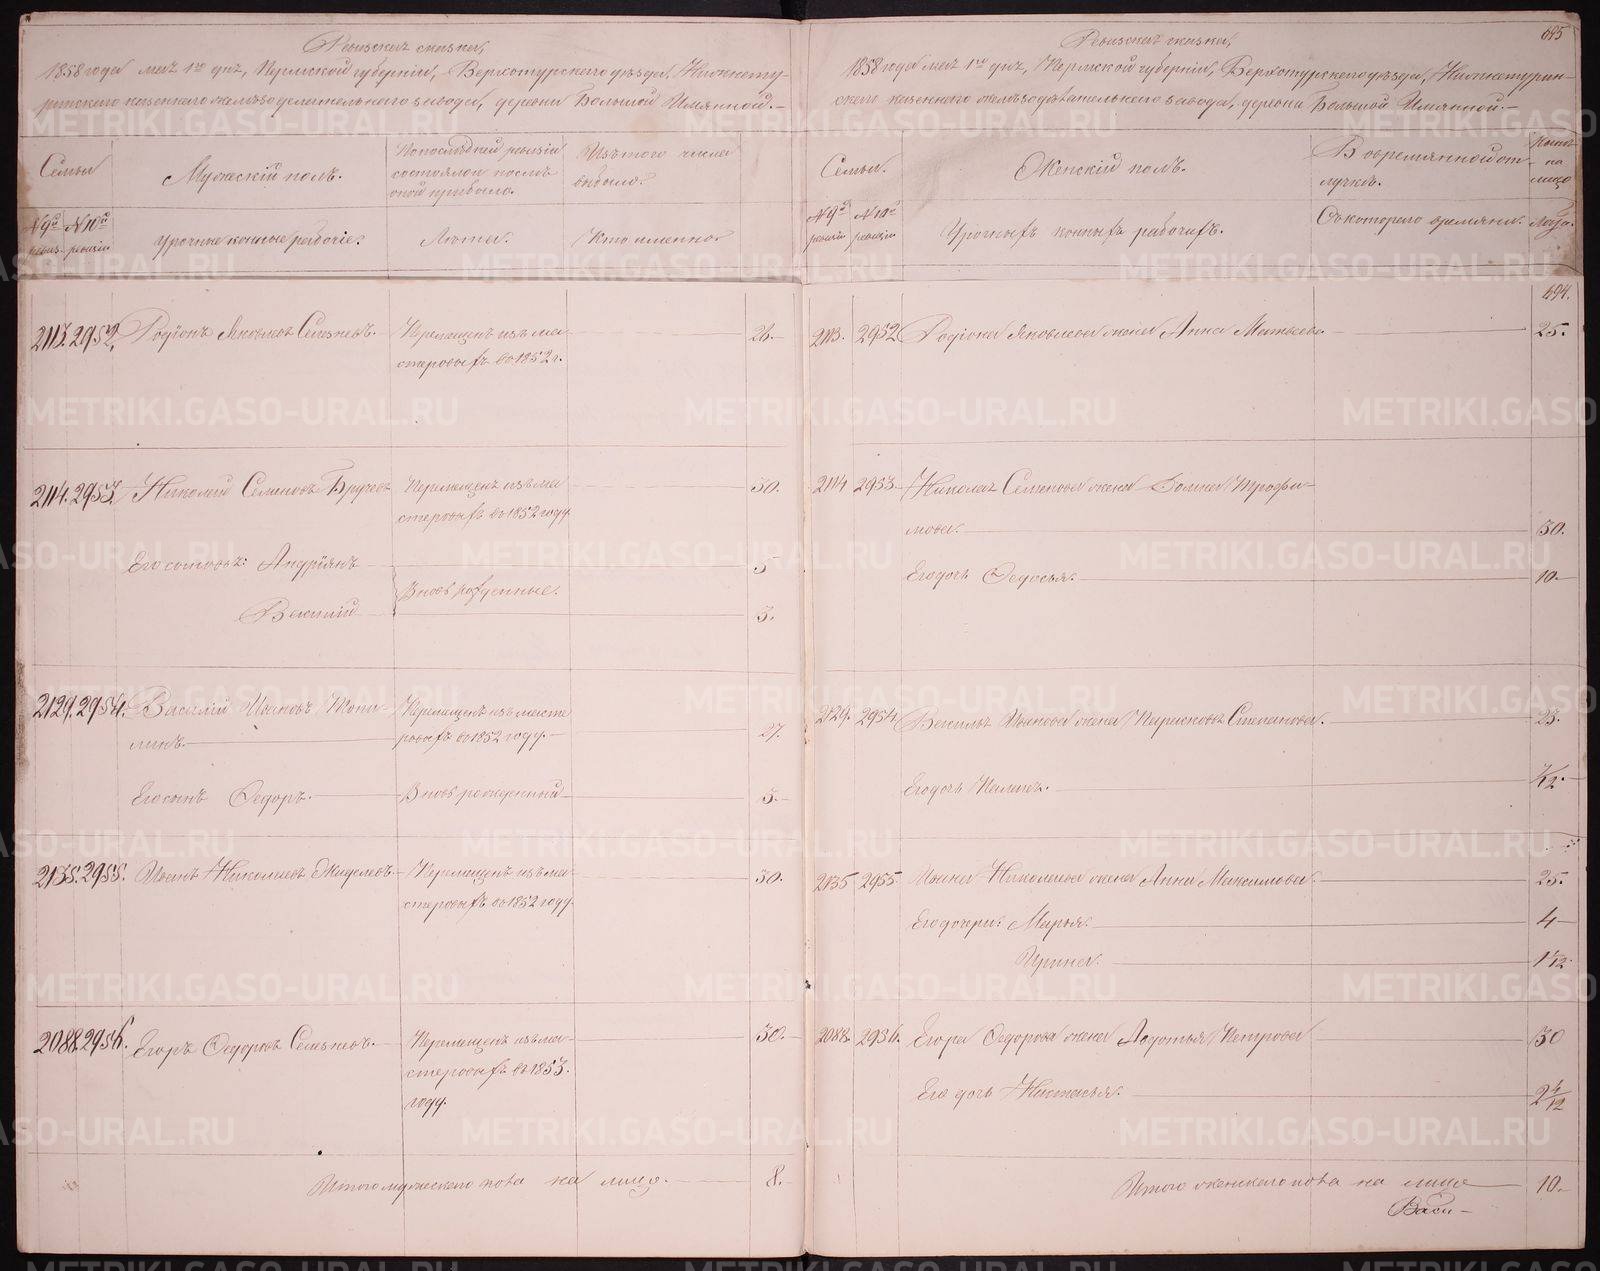 Ревизская сказка,
1858 года мая 1го дня, Пермской губерніи, Верхотурского уѣзда, Нижнету-
ринского казенного желѣзоделательного завода, деревни Большой Имянной.-
Семьи
Мужескій полъ.
По последней ревизіи
состояло и послѣ
оной прибыло.
Изъ того числа
выбыло.
№ 9й
ревиз.
№ 10й
ревизіи
Урочные конные рабочіе.
Лѣта.
Кто именно
2113. 2952. Родіонъ Яковлевъ Селезневъ.
Перемещенъ изъ ма-
стеровыхъ въ 1852 г.
26.-
2114. 2953. Николай Семеновъ
Перемещенъ изъ ма
стеровыхъ въ 1852 году.
30.
Его сыновья: Андріянъ
5
Вновь рожденные.
Василій
3.
2129. 2954. Василій Ивановъ
линъ.
Перемещенъ изъ масте
ровыхъ въ 1852 году.-
27.
Его сынъ Федоръ.
Вновь рожденный
5.-
2135. 2955. Иванъ Николаевъ
Перемещенъ изъ ма-
стеровыхъ въ 1852 году.
30.
2088. 2956. Егоръ Федоровъ Селезневъ.
Перемещенъ изъ ма-
стеровыхъ въ 1853.
году.
30.-
Итого мужеского пола на лицо.
8.-
695
Ревизская сказка,
1858 года мая 1го дня, Пермской губерніи, Верхотурского уѣзда, Нижнетурин-
ского казенного желѣзодѣлательного завода, деревни Большой Имянной.-
Семьи.
Женскій полъ.
Въ временной от-
лучкѣ.
на
лицо
№ 9й
ревизіи
№ 10й
ревизіи
Урочныхъ конныхъ рабочихъ.
Съ которого времяни.
Лѣта.
694.
2113. 2952 Родіона Яковлева жена Анна Матвеева
25.
2114 2953. Николая Семенова жена Домна Трофи-
мова.
30.
Его дочь Федосья.
10.-
2129. 2954 Василья Иванова жена Парасковья Степанова.
23.
Его дочь
/12.
2135 2955. Ивана Николаева жена Анна Максимова.
25.
Его дочери: Марья.
4
Ирина.
1 /12.
2088. 2956. Егора Федорова жена Авдотья Петрова
30
Его дочь Настасья.
2 /12
Итого женского пола на лицо
10.-
Васи-
METRIKI.GASO-URAL.RU